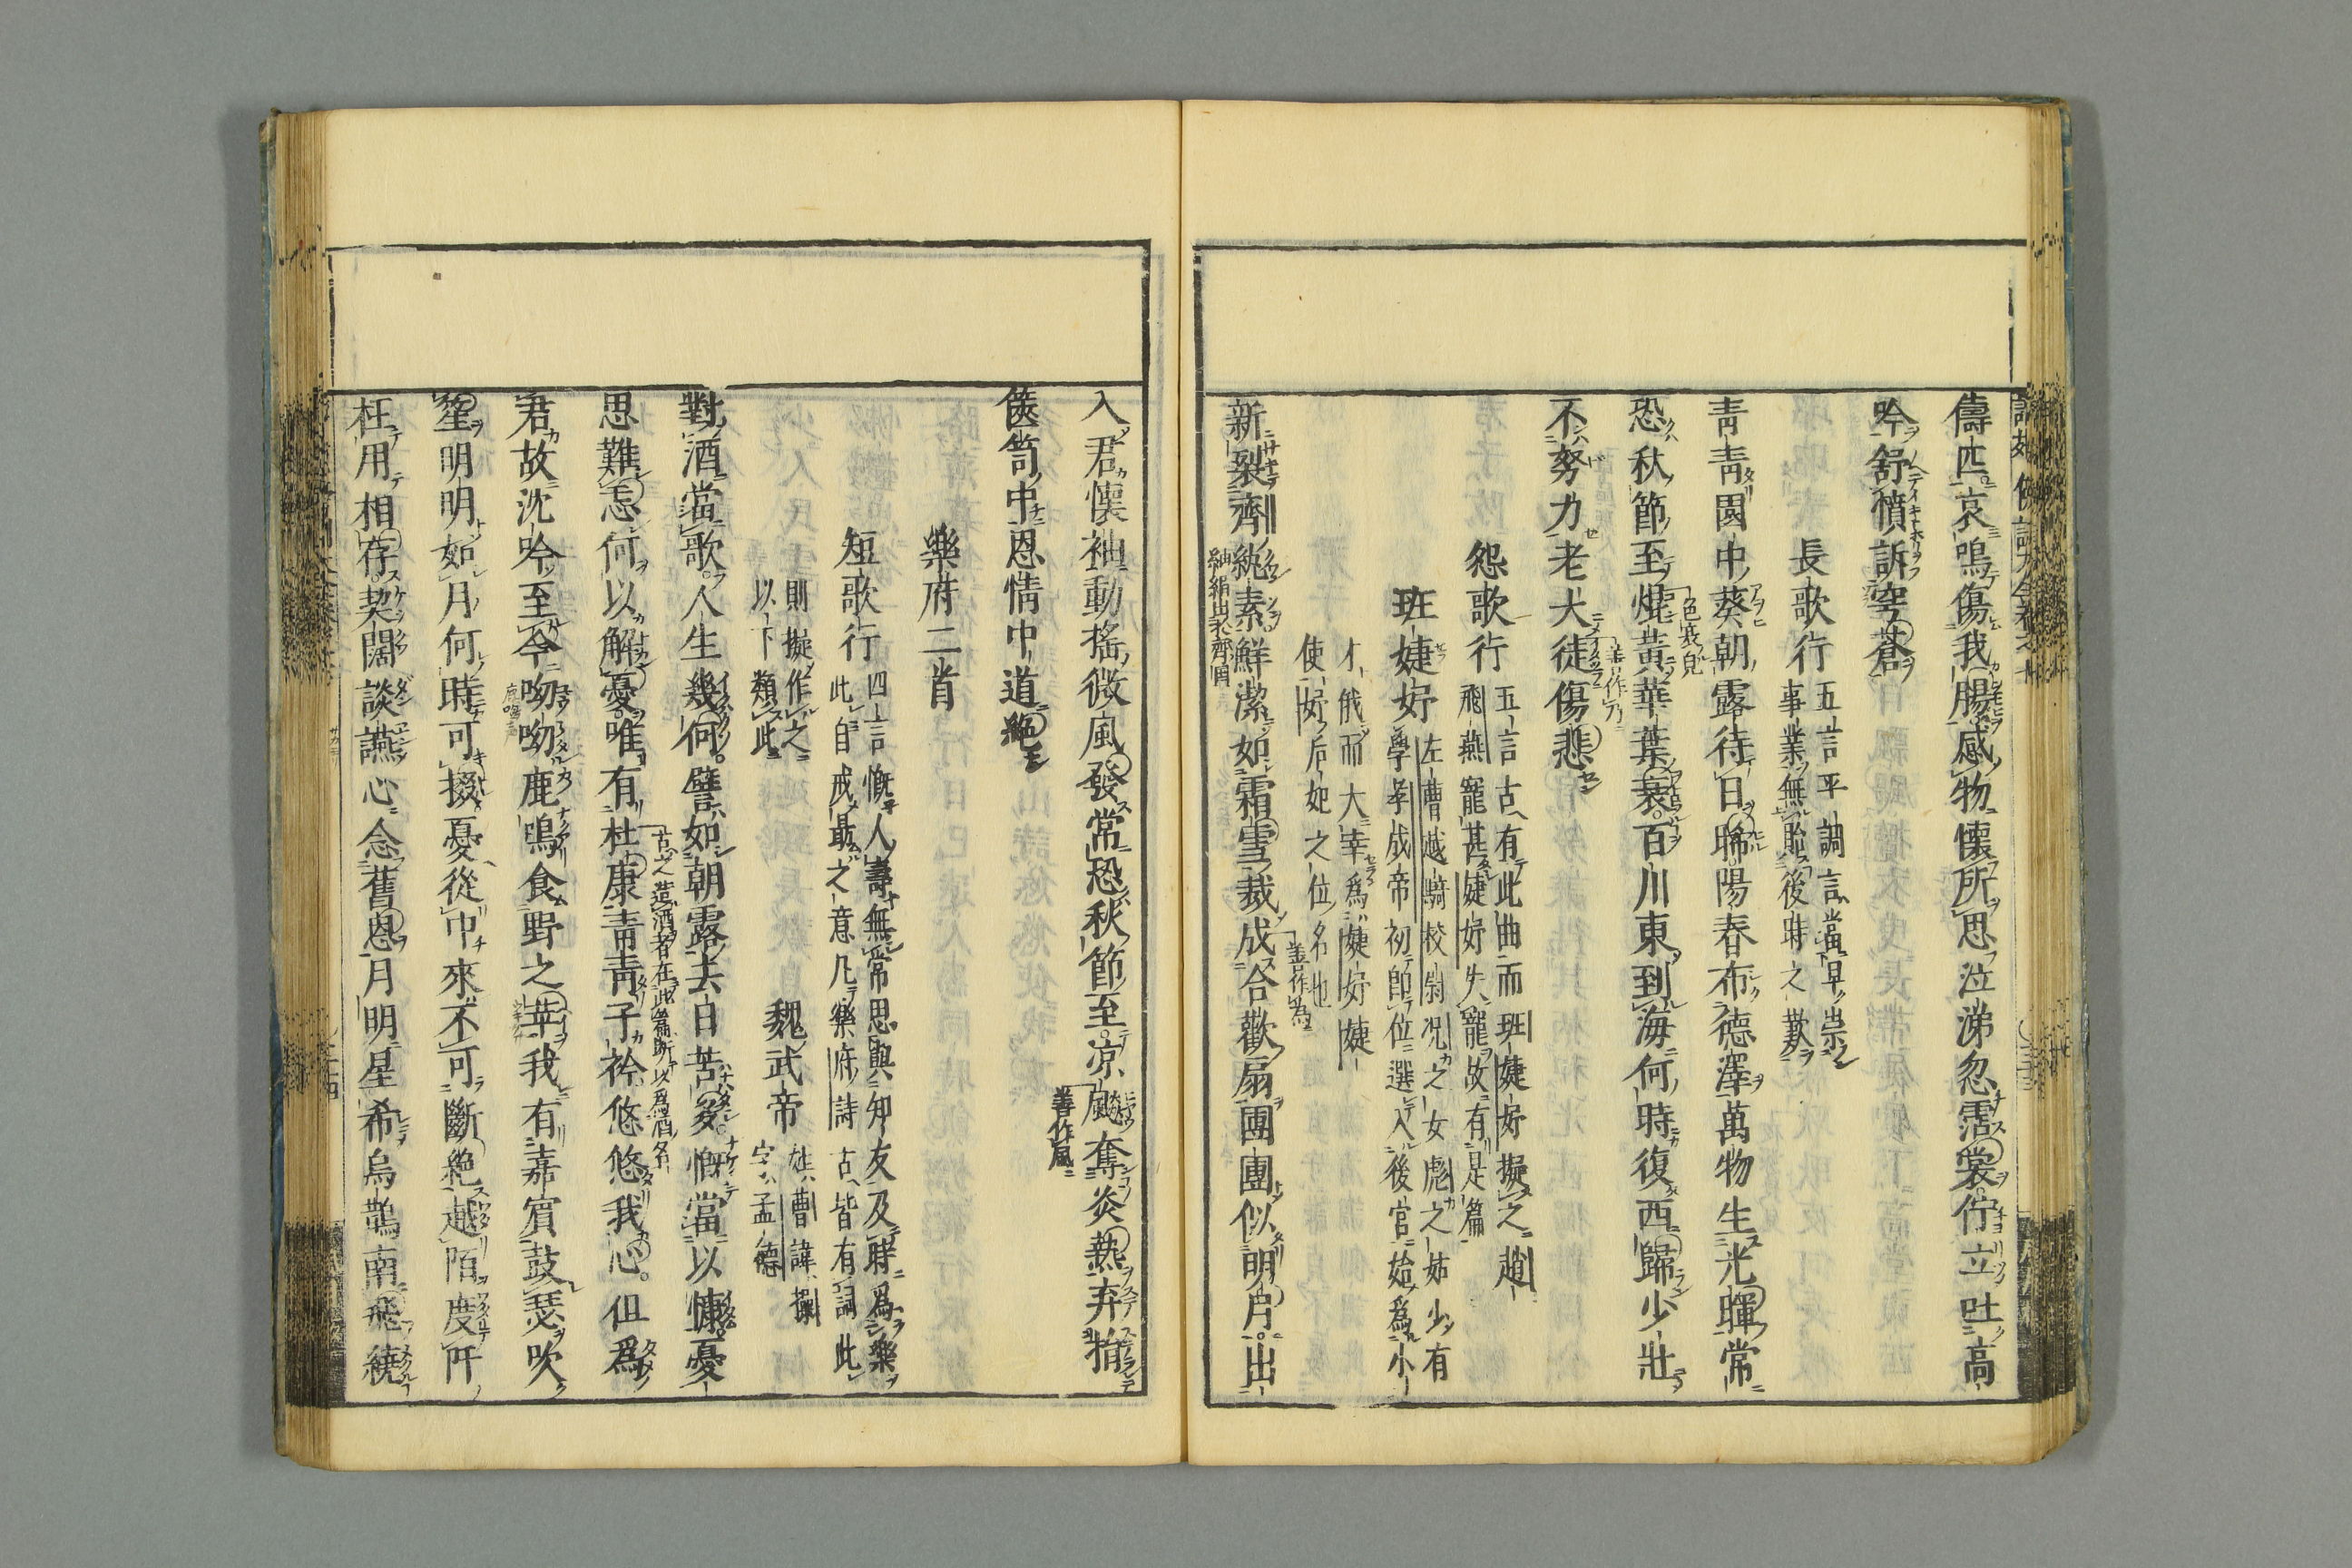 儔匹哀鳴傷我膓感物懷所思泣涕忽霑裳佇立吐高
吟舒憤訴穹蒼
長歌行
五言平調言當早崇
事業無貽後時之歎
青青園中葵朝露待日晞陽春布德澤萬物生光暉常
恐秋節至焜黃華葉衰百川東到海何時復西歸少壯
色衰皃
不努力老大徒傷悲
善作乃
怨歌行
五言古有此曲而班婕妤擬之趙
飛燕寵甚婕妤失寵故有是篇
班婕妤
左曹越騎校尉况之女彪之姊少有
學孝成帝初即位選入後宮始爲小
才俄而大幸爲婕妤婕
使妤后妃之位名也
新裂齊紈素鮮潔如霜雪裁成合歡扇團團似明月出
細絹出齊國
善作為
入君懷袖動搖微風發常恐秋節至凉飇奪炎熱弃捐
善作風
篋笥中恩情中道絕
樂府二首
短歌行
四言慨人壽無常思與知友及時爲樂
此自戒最之意凡樂府詩古皆有詞此
則擬作之
以下類此
魏武帝
姓曹諱操
字孟德
對酒當歌人生幾何譬如朝露去日苦多慨當以慷憂
思難忘何以解憂唯有杜康青青子衿悠悠我心但爲
古之造酒者在此篇所以爲酒名
君故沈吟至今呦呦鹿鳴食野之苹我有嘉賓鼓瑟吹
鹿鳴
笙明明如月何時可掇憂從中來不可斷絕越陌度阡
枉用相存契闊談讌心念舊恩月明星希烏鵲南飛繞